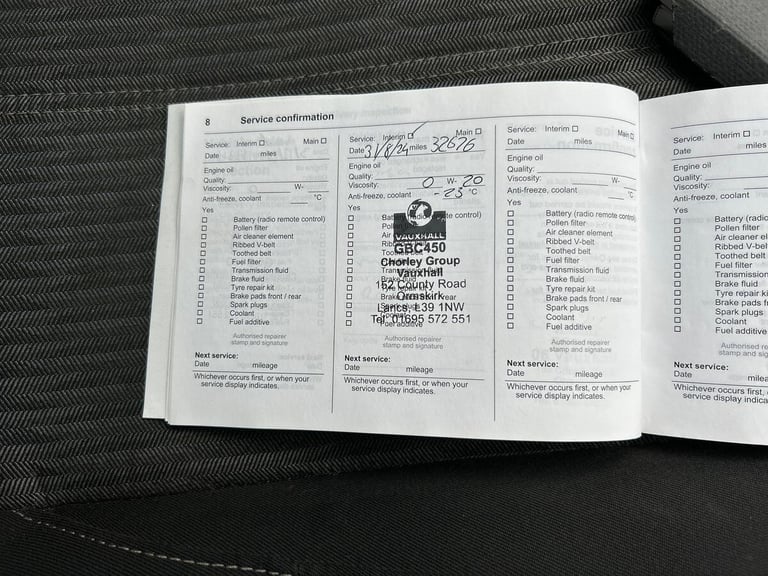 8 Service confirmation
Service: Interim Main
Date miles
Engine oil
Quality:
Viscosity: W-
Anti-freeze, coolant °C
Yes
Battery (radio remote control)
Pollen filter
Air cleaner element
Ribbed V-belt
Toothed belt
Fuel filter
Transmission fluid
Brake fluid
Tyre repair kit
Brake pads front / rear
Spark plugs
Coolant
Fuel additive
Authorised repairer
stamp and signature
Next service:
Date mileage
Whichever occurs first, or when your
service display indicates.
Service: Interim Main
Date 31/8/24 miles 32676
Engine oil
Quality:
Viscosity: 0 W- 20
Anti-freeze, coolant -23 °C
Yes
VAUXHALL
GBC450
Chorley Group
Vauxhall
152 County Road
Ormskirk
Lancs, L39 1NW
Tel: 01695 572 551
Authorised repairer
stamp and signature
Next service:
Date mileage
Whichever occurs first, or when your
service display indicates.
Service: Interim Main
Date miles
Engine oil
Quality:
Viscosity: W-
Anti-freeze, coolant °C
Yes
Battery (radio remote control)
Pollen filter
Air cleaner element
Ribbed V-belt
Toothed belt
Fuel filter
Transmission fluid
Brake fluid
Tyre repair kit
Brake pads front / rear
Spark plugs
Coolant
Fuel additive
Authorised repairer
stamp and signature
Next service:
Date mileage
Whichever occurs first, or when your
service display indicates.
Service: Interim
Date miles
Engine oil
Quality:
Viscosity:
Anti-freeze, coolant
Yes
Battery (radio
Pollen filter
Air cleaner el
Ribbed V-belt
Toothed belt
Fuel filter
Transmission
Brake fluid
Tyre repair ki
Brake pads f
Spark plugs
Coolant
Fuel additive
Authorised re
stamp and sig
Next service:
Date milea
Whichever occurs first, o
service display indica